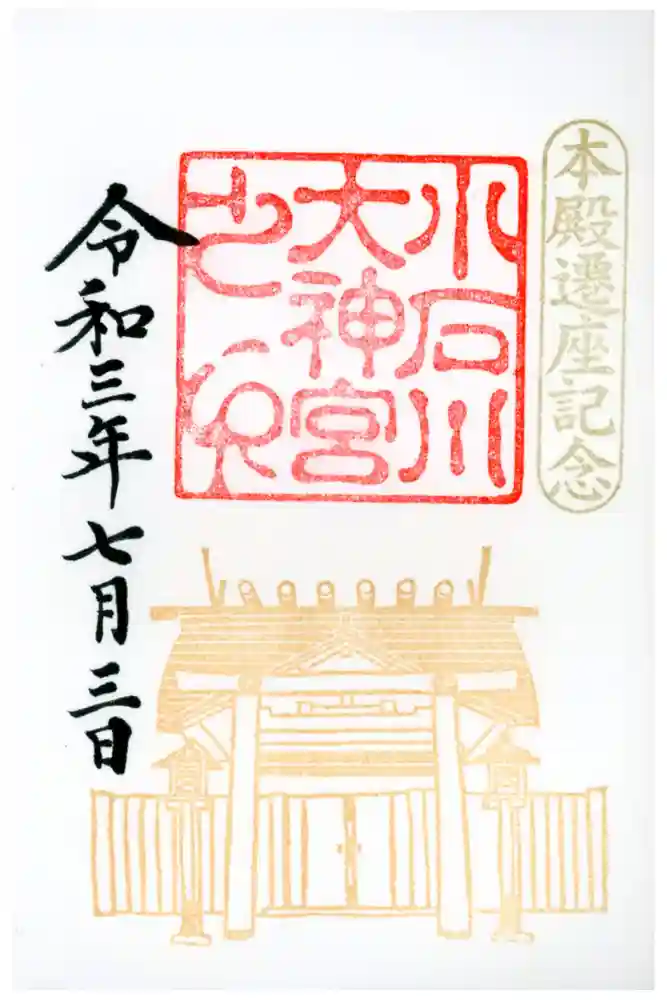 本殿遷座記念
小石川
大神宮
之印
令和三年七月三日